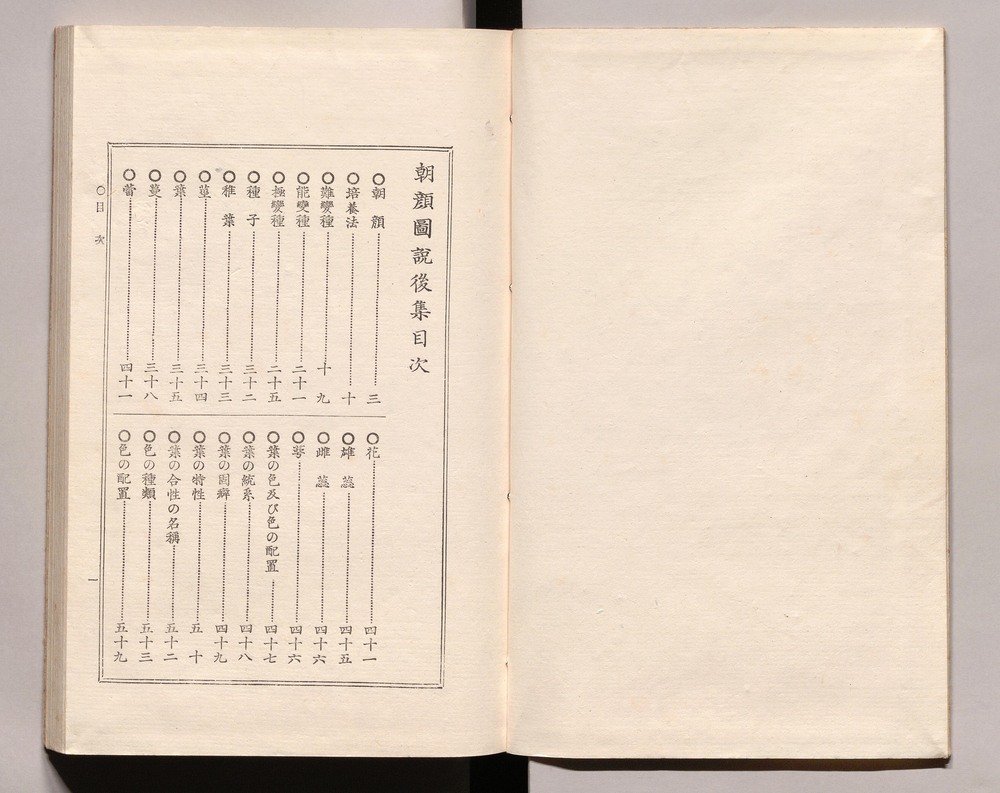 朝顏圖說後集目次
○朝顏……三
○培養法……十
○難變種……十九
○能變種……二十一
○極變種……二十五
○種子……三十二
○稚葉……三十三
○莖……三十四
○葉……三十五
○蔓……三十八
○蕾……四十一
○花……四十一
○雄蕊……四十五
○雌蕊……四十六
○萼……四十六
○葉の色及び色の配置……四十七
○葉の統系……四十八
○葉の固癖……四十九
○葉の特性……五十
○葉の合性の名稱……五十二
○色の種類……五十三
○色の配置……五十九
○目次
一